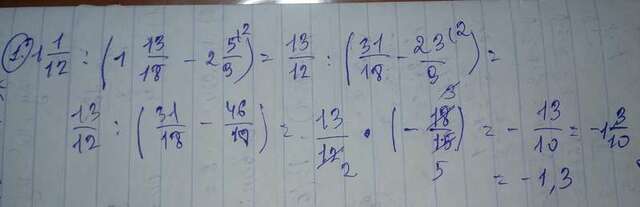 1) 1 1/12 : (1 13/18 - 2 5/9^(2) = 13/12 : (31/18 - 23/9^(2) =
13/12 : (31/18 - 46/18) = 13/12 · (-18/15) = -13/10 = -1 3/10
2 5 3
= -1,3